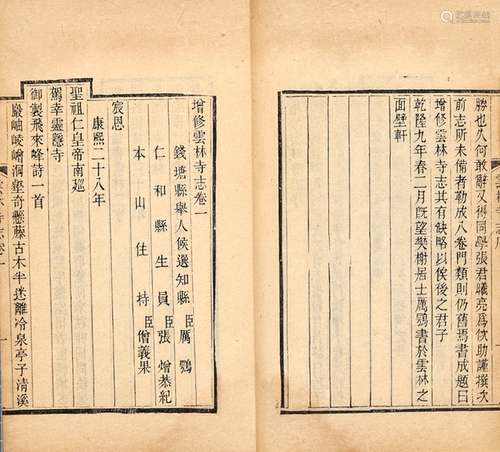 勝也久何敢辭又得同學張君曦亮爲佽助謹撰次
前志所未備者勒成八卷門類則仍舊焉書成題曰
增修雲林寺志其有缺略以俟後之君子
乾隆九年春二月既望樊榭居士厲鶚書於雲林之
面壁軒
增修雲林寺志卷一
錢塘縣舉人候選知縣臣厲鶚
仁和縣生員臣張熷恭紀
本山住持臣僧義果
宸恩
康熙二十八年
聖祖仁皇帝南巡
駕幸靈隱寺
御製飛來峰詩一首
巖岫崚嶒洞壑奇懸藤古木半迷離冷泉亭子清溪